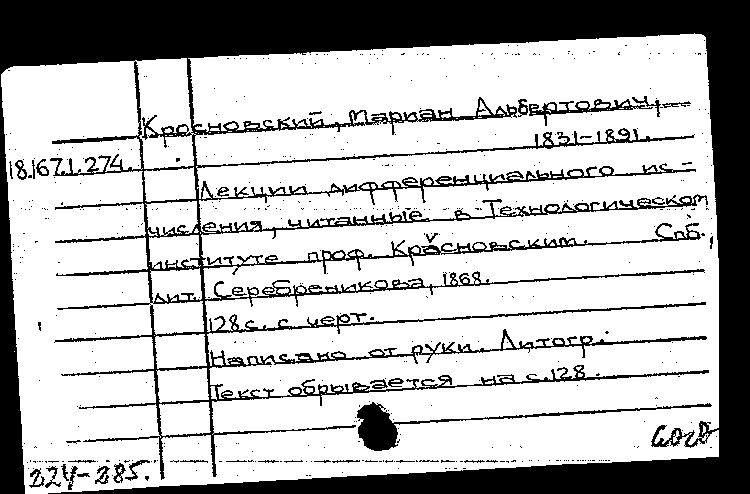 Кросновский, Мариан Альбертович,
1831-1891.
18.167.1.274.
Лекции дифференциального ис-
числения, читанные в Технологическом
институте проф. Красновским. Спб.,
лит. Серебреникова, 1868.
128 с. с черт.
Написано от руки. Литогр.
Текст обрывается на с. 128.
224-885.